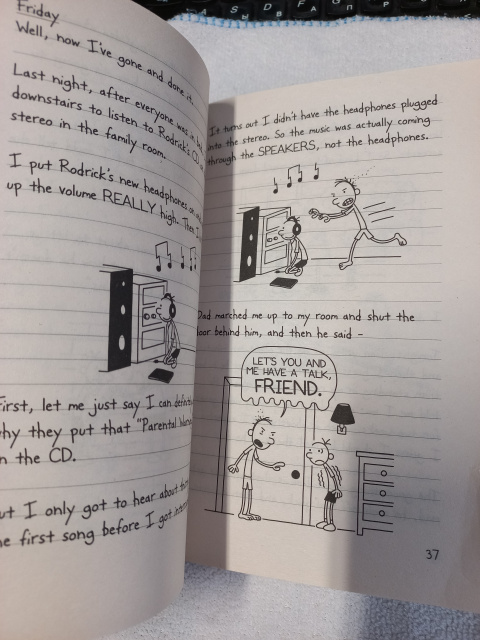 Friday
Well, now I've gone and done it.
Last night, after everyone was in bed,
downstairs to listen to Rodrick's CD
stereo in the family room.
I put Rodrick's new headphones on
up the volume REALLY high. Then I
First, let me just say I can
why they put that "Parental
on the CD.
But I only got to hear about
the first song before I got
It turns out I didn't have the headphones plugged
into the stereo. So the music was actually coming
through the SPEAKERS, not the headphones.
Dad marched me up to my room and shut the
door behind him, and then he said -
LET'S YOU AND
ME HAVE A TALK,
FRIEND.
37